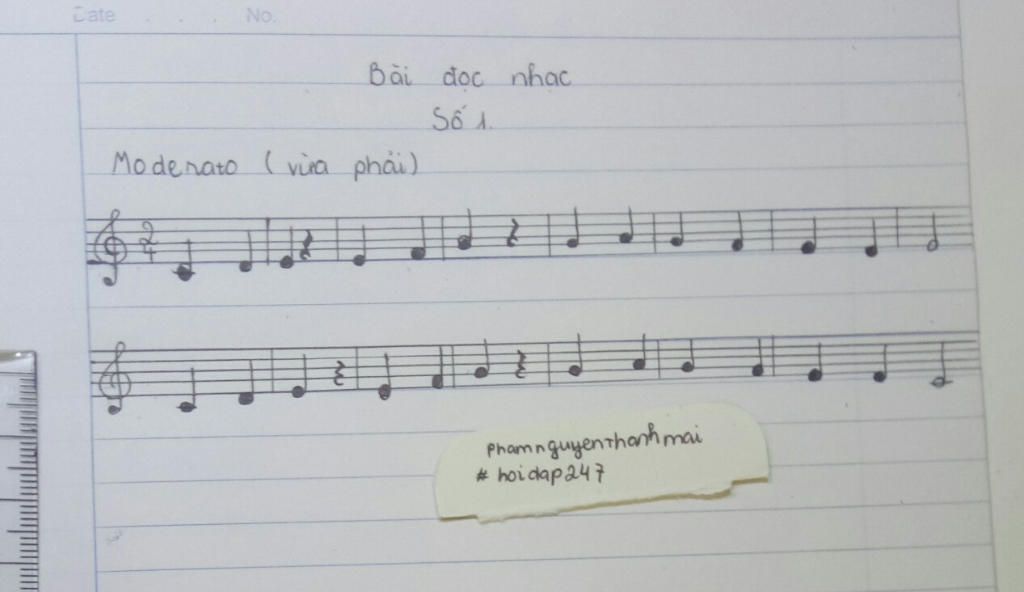 Date . . . No.
Bài đọc nhạc
Số 1.
Moderato (vừa phải)
2
4
phamnguyenthanhmai
# hoidap247